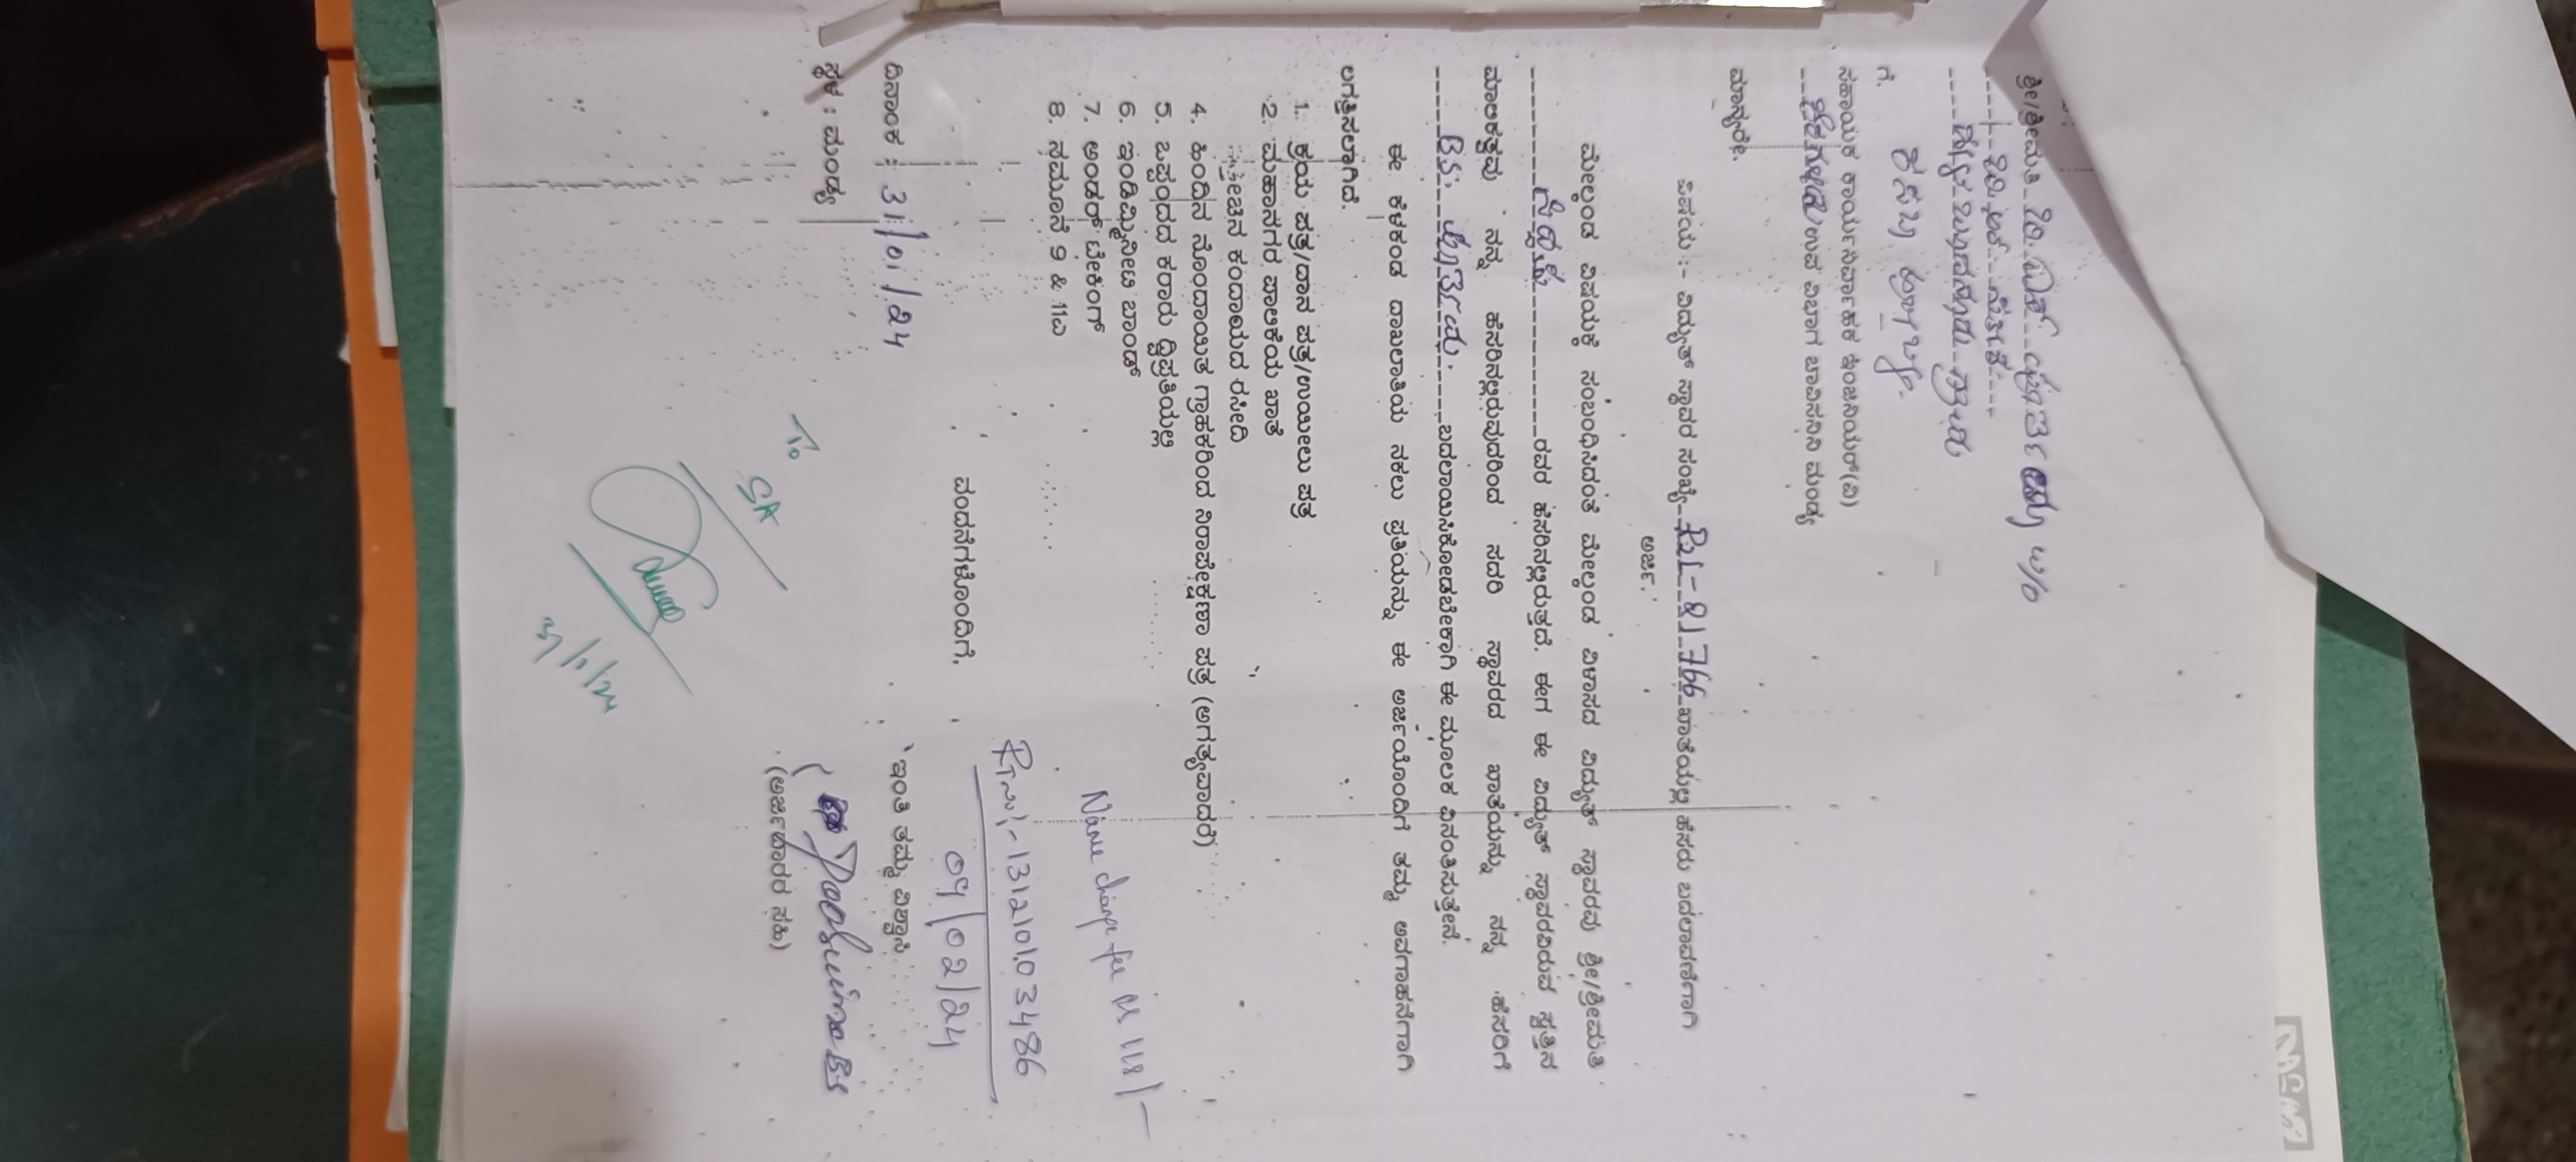 ಶ್ರೀ/ಶ್ರೀಮತಿ ಬಿ. ಎಸ್ w/o
ಗೆ.
ಸಹಾಯಕ ಕಾರ್ಯನಿರ್ವಾಹಕ ಇಂಜಿನಿಯರ್(ವಿ)
ಉಪ ವಿಭಾಗ ಚಾವಿಸನಿನಿ ಮಂಡ್ಯ
ಮಾನ್ಯರೇ.
ವಿಷಯ :- ವಿದ್ಯುತ್ ಸ್ಥಾವರ ಸಂಖ್ಯೆ 81766 ಖಾತೆಯಲ್ಲಿ ಹೆಸರು ಬದಲಾವಣೆಗಾಗಿ
ಅರ್ಜಿ.
ಮೇಲ್ಕಂಡ ವಿಷಯಕ್ಕೆ ಸಂಬಂಧಿಸಿದಂತೆ ಮೇಲ್ಕಂಡ ವಿಳಾಸದ ವಿದ್ಯುತ್ ಸ್ಥಾವರವು ಶ್ರೀ/ಶ್ರೀಮತಿ
ಸಿದ್ದಮ್ಮ ರವರ ಹೆಸರಿನಲ್ಲಿರುತ್ತದೆ. ಈಗ ಈ ವಿದ್ಯುತ್ ಸ್ಥಾವರವಿರುವ ಸ್ವತ್ತಿನ
ಮಾಲೀಕತ್ವವು ನನ್ನ ಹೆಸರಿನಲ್ಲಿರುವುದರಿಂದ ಸದರಿ ಸ್ಥಾವರದ ಖಾತೆಯನ್ನು ನನ್ನ ಹೆಸರಿಗೆ
B.S. ಬದಲಾಯಿಸಿಕೊಡಬೇಕಾಗಿ ಈ ಮೂಲಕ ವಿನಂತಿಸುತ್ತೇನೆ.
ಈ ಕೆಳಕಂಡ ದಾಖಲಾತಿಯ ನಕಲು ಪ್ರತಿಯನ್ನು ಈ ಅರ್ಜಿಯೊಂದಿಗೆ ತಮ್ಮ ಅವಗಾಹನೆಗಾಗಿ
ಲಗತ್ತಿಸಲಾಗಿದೆ.
1. ಕ್ರಯ ಪತ್ರ/ದಾನ ಪತ್ರ/ಉಯಿಲು ಪತ್ರ
2. ಮಹಾನಗರ ಪಾಲಿಕೆಯ ಖಾತೆ
ಇತ್ತೀಚಿನ ಕಂದಾಯದ ರಸೀದಿ
4. ಹಿಂದಿನ ನೊಂದಾಯಿತ ಗ್ರಾಹಕರಿಂದ ನಿರಾಪೇಕ್ಷಣಾ ಪತ್ರ (ಅಗತ್ಯವಾದರೆ)
5. ಒಪ್ಪಂದದ ಕರಾರು ದ್ವಿಪ್ರತಿಯಲ್ಲಿ
6. ಇಂಡಿಮ್ನಿಟಿ ಬಾಂಡ್
7. ಅಂಡರ್ ಟೇಕಿಂಗ್
8. ನಮೂನೆ 9 & 11ಎ
Name change fee Rs 118/-
RT.ನಂ:- 131210103486
09/02/24
ವಂದನೆಗಳೊಂದಿಗೆ,
ದಿನಾಂಕ : 31/01/24
ಇಂತಿ ತಮ್ಮ ವಿಶ್ವಾಸಿ
ಸ್ಥಳ : ಮಂಡ್ಯ
(ಅರ್ಜಿದಾರರ ಸಹಿ)
To
SA